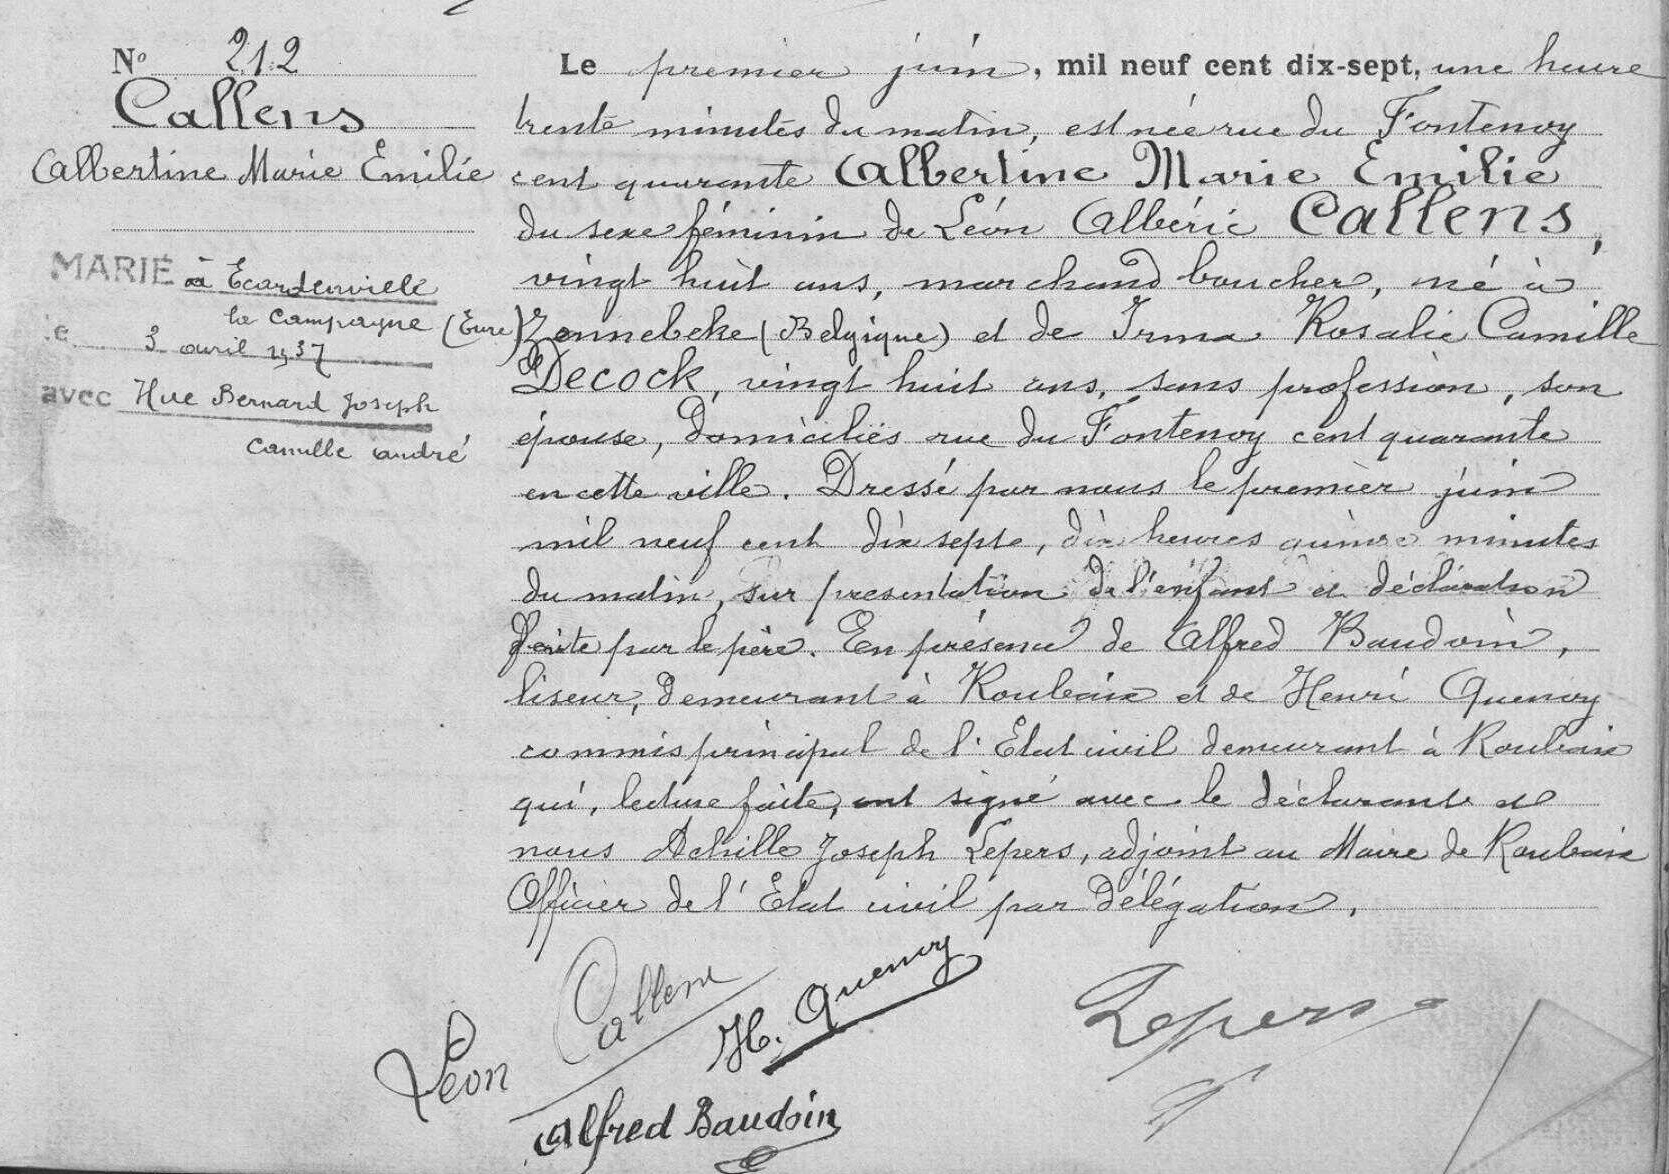 No 212
Callens
Albertine Marie Émilie
MARIÉ à Ecardenville
la Campagne (Eure)
le 3 avril 1937
avec Hue Bernard Joseph
Camille André
Le premier juin, mil neuf cent dix-sept, une heure
trente minutes du matin, est née rue du Fontenoy
cent quarante Albertine Marie Émilie
du sexe féminin de Léon Albéric Callens,
vingt huit ans, marchand boucher, né à
Zonnebeke (Belgique) et de Irma Rosalie Camille
Decock, vingt huit ans, sans profession, son
épouse, domiciliés rue du Fontenoy cent quarante
en cette ville. Dressé par nous le premier juin
mil neuf cent dix sept, dix heures quinze minutes
du matin, sur présentation de l'enfant et déclaration
faite par le père. En présence de Alfred Baudoin,
liseur, demeurant à Roubaix et de Henri Quenoy
commis principal de l'État civil demeurant à Roubaix
qui, lecture faite, ont signé avec le déclarant et
nous Achille Joseph Lepers, adjoint au Maire de Roubaix
Officier de l'État civil par délégation.
Léon Callens
H. Quenoy
Lepers
Alfred Baudoin